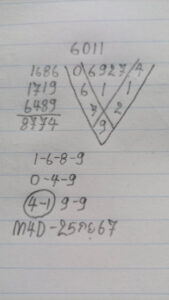 6011
1686 0 6 9 2 7 4
1719 6 1 1
6489 3 2
8774 9
1-6-8-9
0-4-9
4-1 9-9
M4D-25
67